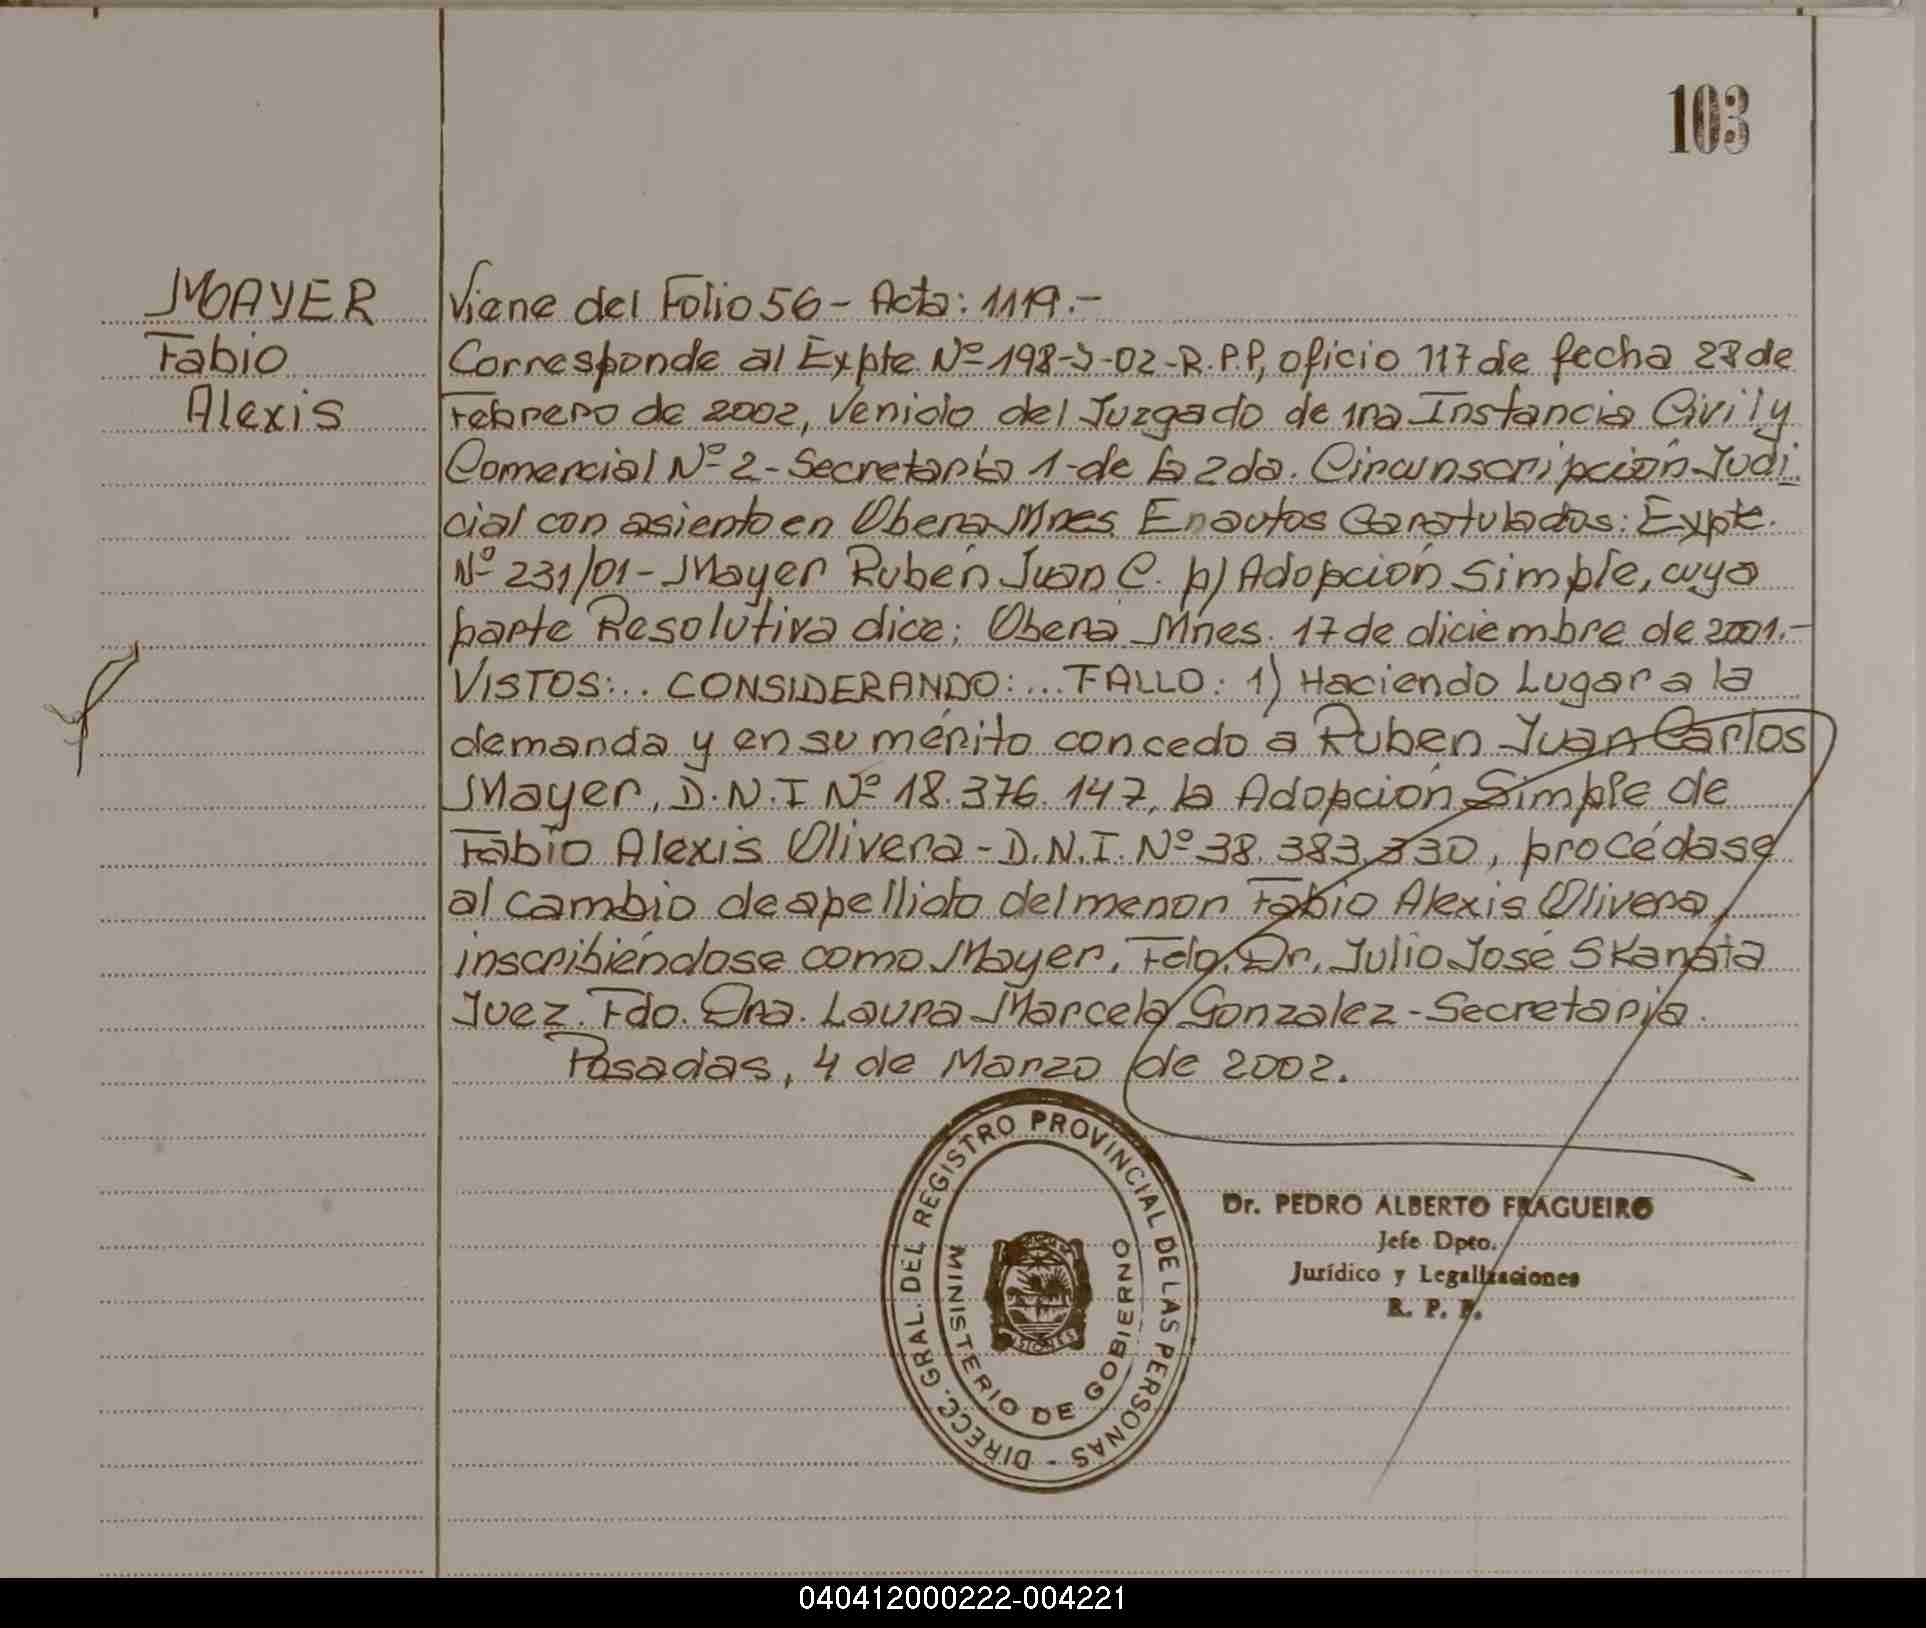 103
MAYER
Fabio
Alexis
Viene del Folio 56 - Acta: 1119.-
Corresponde al Expte Nº 198-J-02-R.P.P, oficio 117 de fecha 28 de
Febrero de 2002, venido del Juzgado de 1ra Instancia Civil y
Comercial Nº 2 - Secretaría 1 - de la 2da. Circunscripción Judi
cial con asiento en Obera Mnes. En autos Caratulados: Expte.
Nº 231/01 - Mayer Rubén Juan C. p/ Adopción Simple, cuya
parte Resolutiva dice: Oberá Mnes. 17 de diciembre de 2001.-
VISTOS:.. CONSIDERANDO:... FALLO: 1) Haciendo Lugar a la
demanda y en su mérito concedo a Ruben Juan Carlos
Mayer, D.N.I Nº 18.376.147, la Adopción Simple de
Fabio Alexis Olivera - D.N.I. Nº 38.383.330, procédase
al cambio de apellido del menor Fabio Alexis Olivera,
inscribiéndose como Mayer. Fdo. Dr. Julio José Skanata
Juez. Fdo. Dra. Laura Marcela Gonzalez - Secretaria.
Posadas, 4 de Marzo de 2002.
DIRECC. GRAL. DEL REGISTRO PROVINCIAL DE LAS PERSONAS -
MINISTERIO DE GOBIERNO
MISIONES
Dr. PEDRO ALBERTO FRAGUEIRO
Jefe Dpto.
Jurídico y Legalizaciones
R. P. P.
040412000222-004221